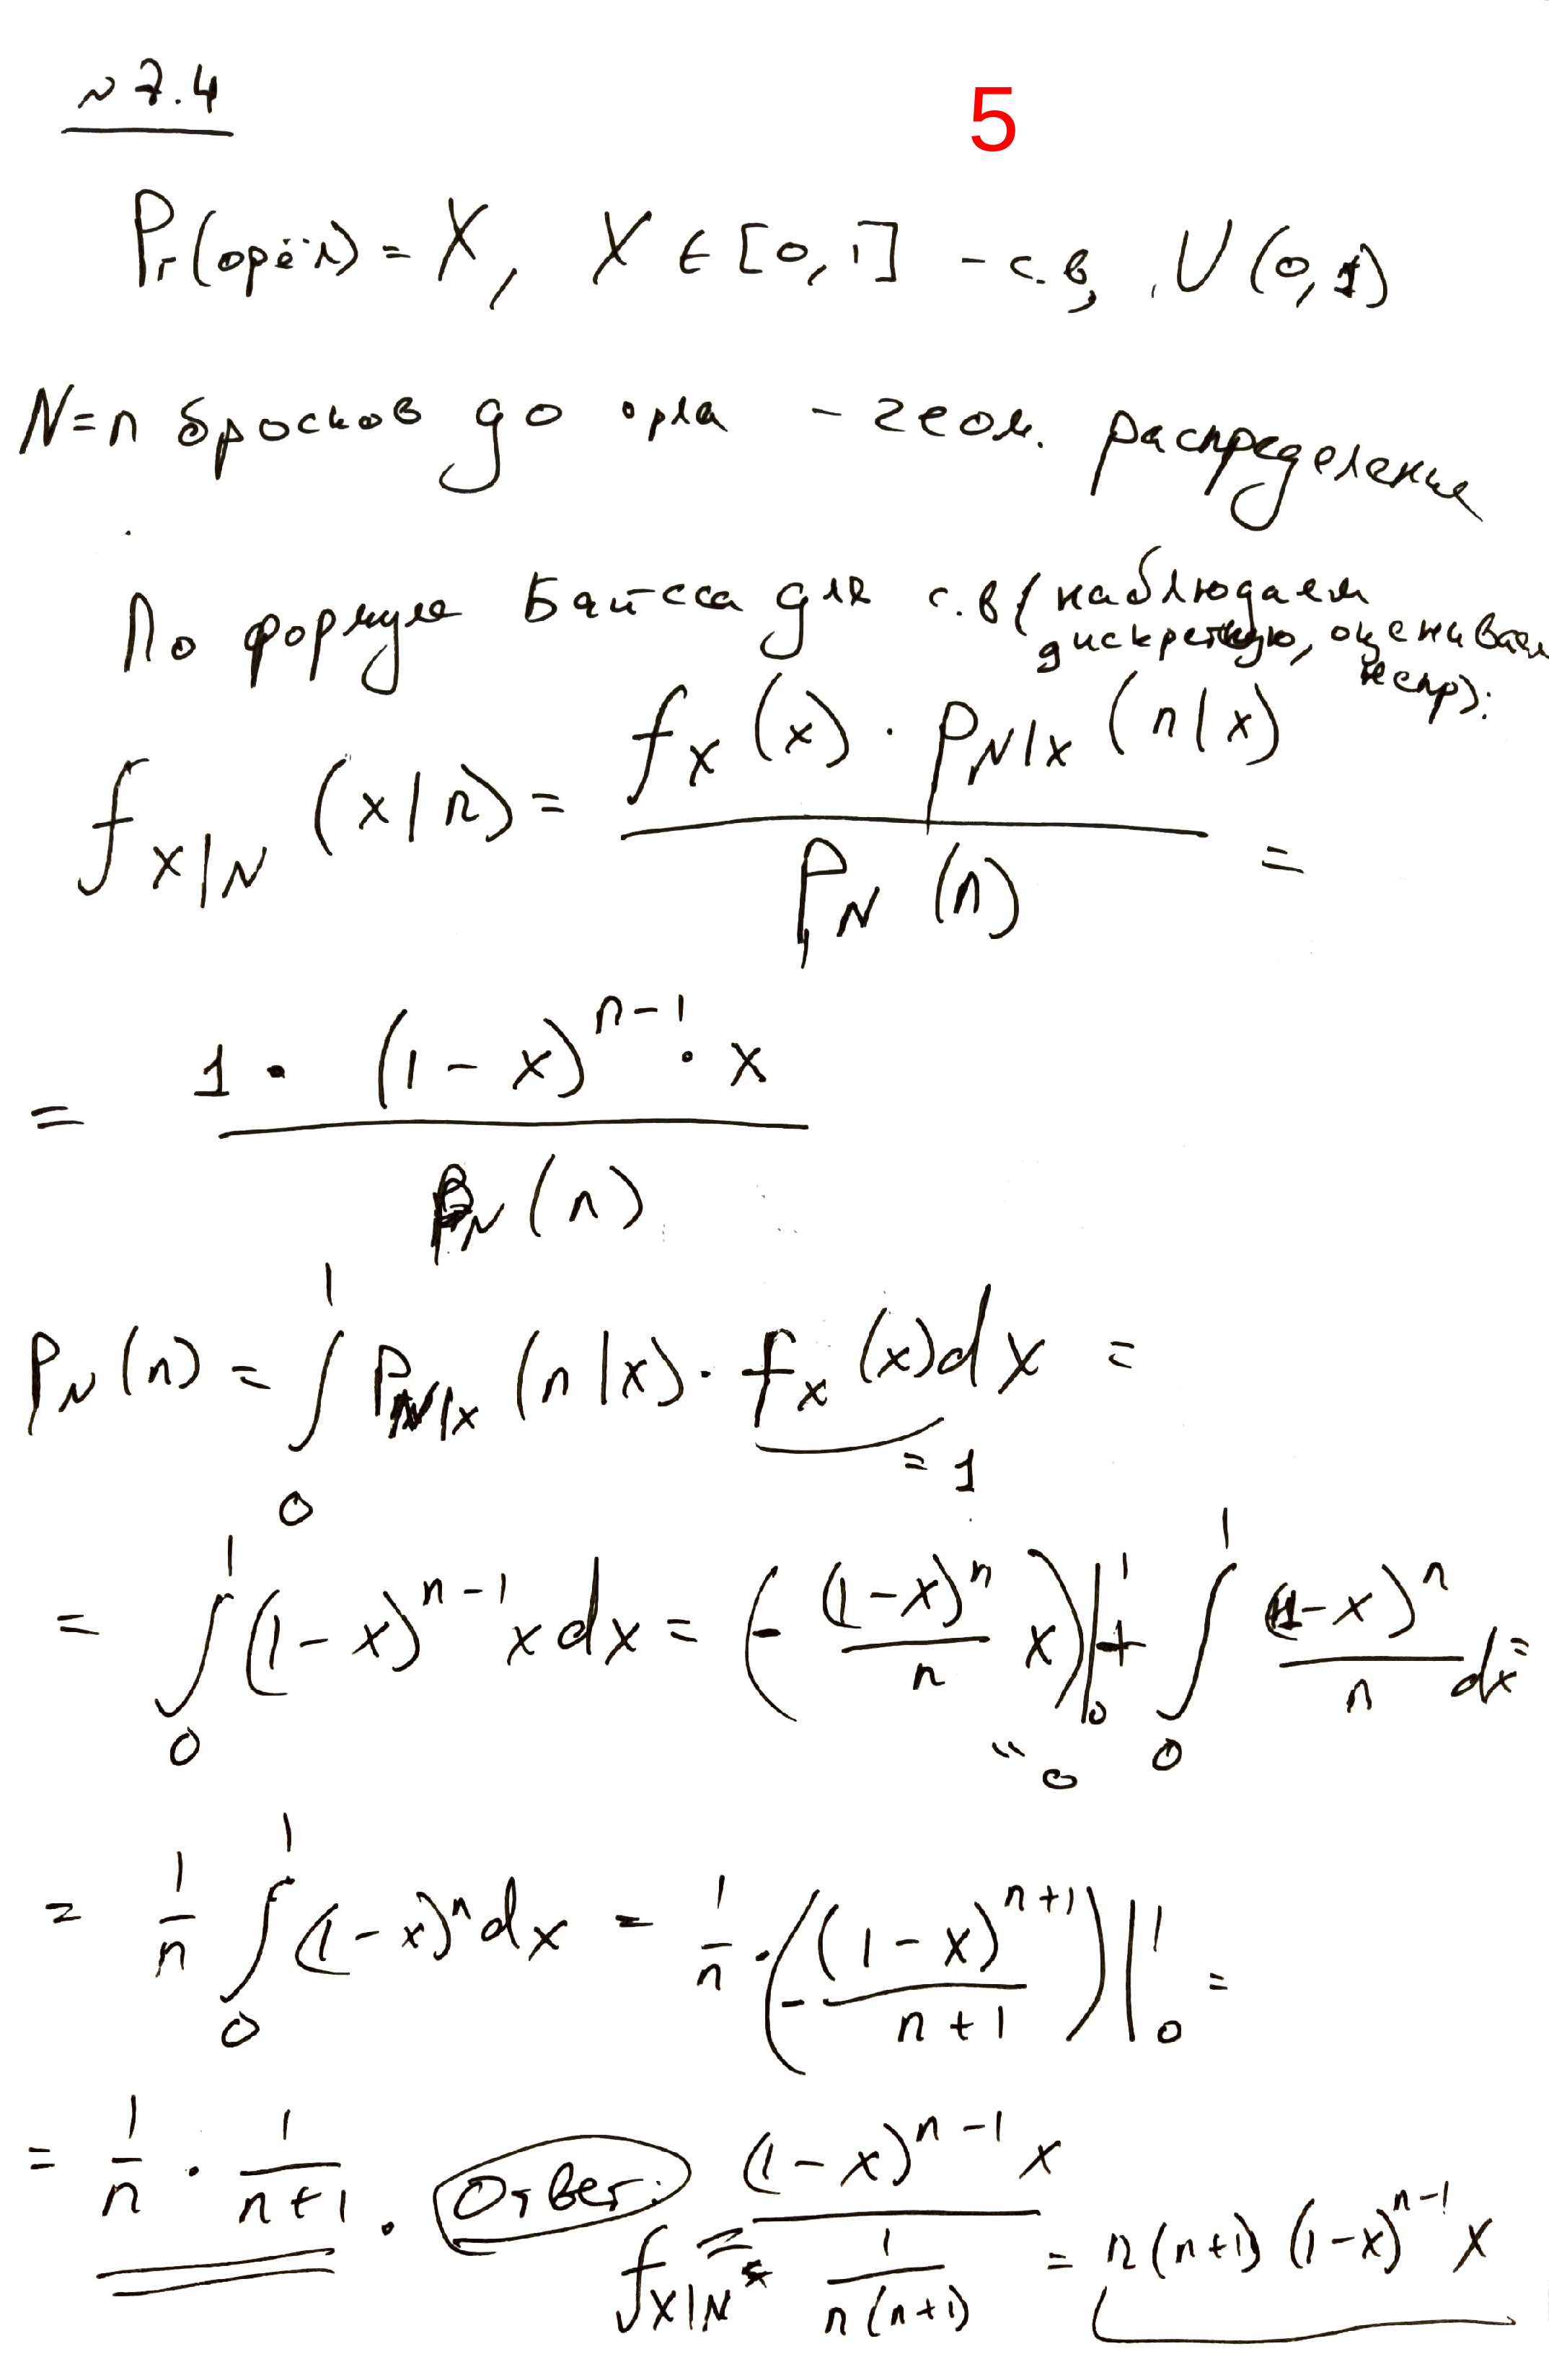 № 7.4
5
Pr(орёл) = X, X ∈ [0,1] - с.в, U(0,1)
N=n бросков до орла - геом. распределение
По формуле Байеса для с.в (наблюдаем
дискретную, оцениваем
непр):
f_{X|N}(x|n) = \frac{f_X(x) · p_{N|X}(n|x)}{p_N(n)} =
= \frac{1 · (1-x)^{n-1} · x}{p_N(n)}
p_N(n) = ∫_0^1 p_{N|X}(n|x) · f_X(x)dx =
= 1
= ∫_0^1 (1-x)^{n-1} x dx = (- \frac{(1-x)^n}{n} x)|_0^1 + ∫_0^1 \frac{(1-x)^n}{n} dx =
= 0
= \frac{1}{n} ∫_0^1 (1-x)^n dx = \frac{1}{n} · (- \frac{(1-x)^{n+1}}{n+1})|_0^1 =
= \frac{1}{n} · \frac{1}{n+1}. Ответ: f_{X|N} = \frac{(1-x)^{n-1} x}{\frac{1}{n(n+1)}} = n(n+1)(1-x)^{n-1} x